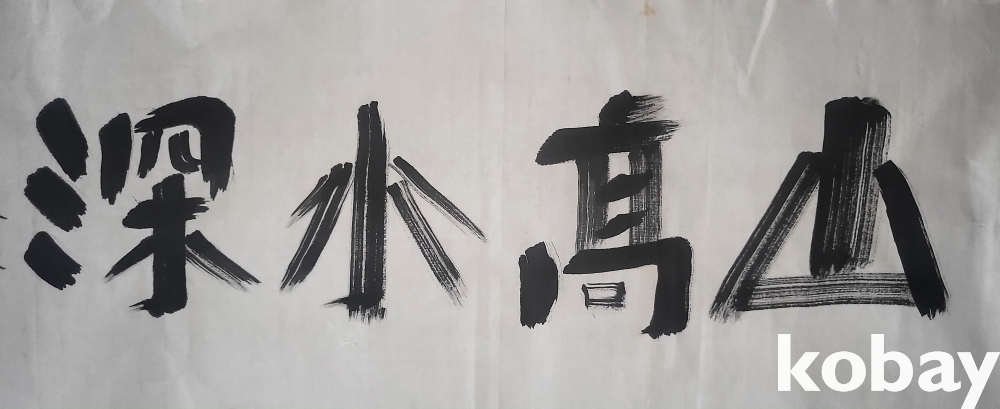 山高水深
kobay